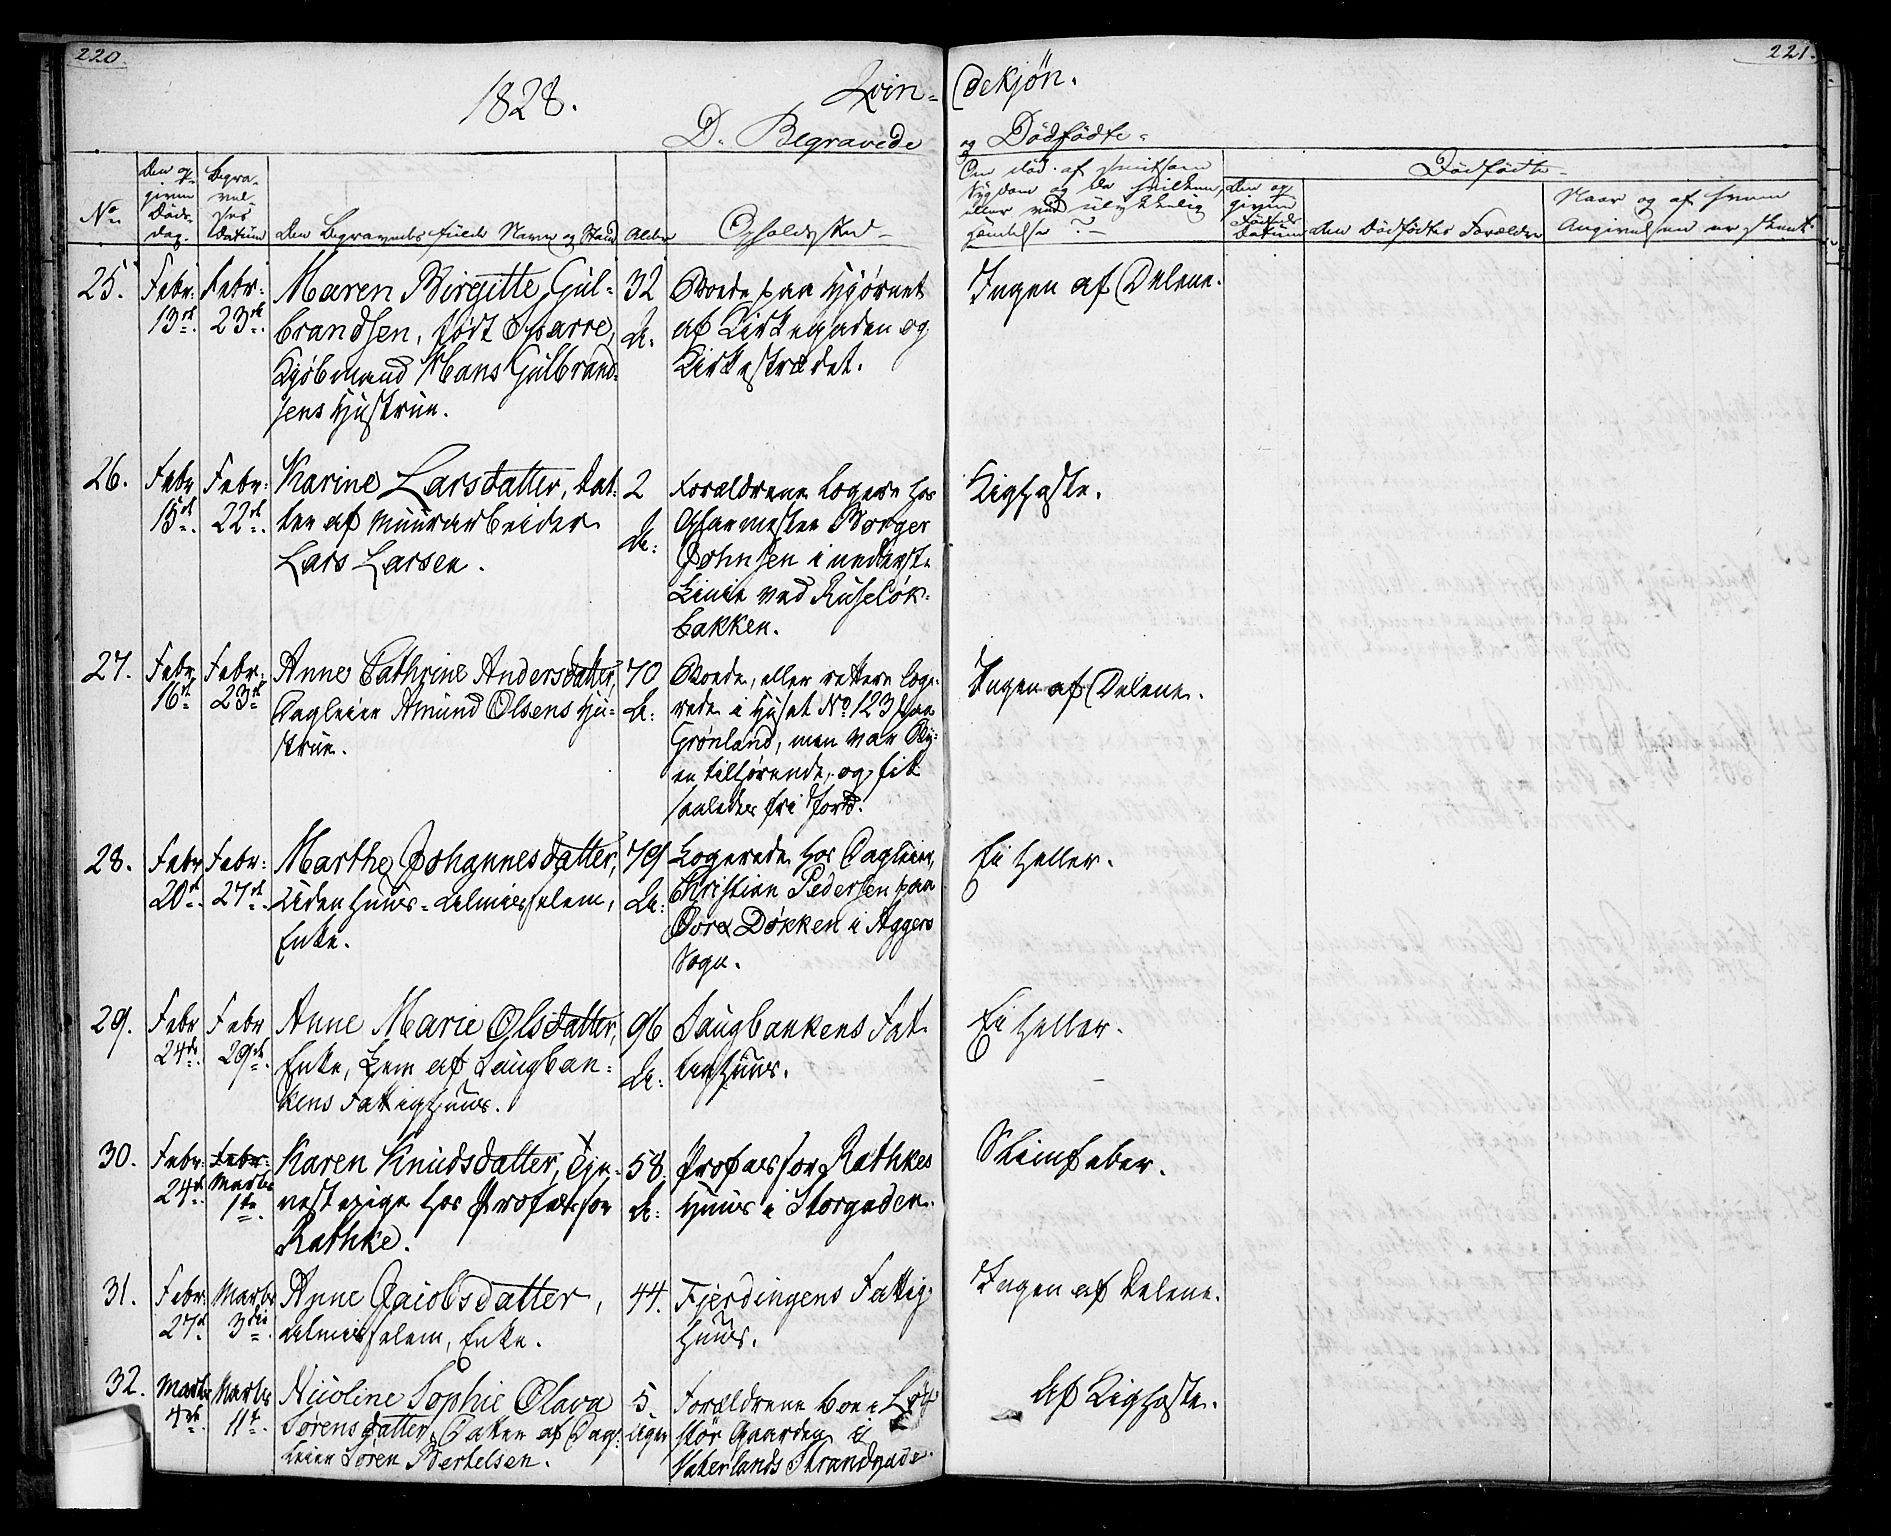 220
221.
1828.
Qvin-
dekjön.
D. Begravede
og Dødfødte.
No
Den op-
given
Døds-
dag.
Begra-
vel-
ses
Datum
Den Begravedes fulde Navn og Stand
Alder
Opholdssted
Om død af smitsom
Sygdom og da hvilken,
eller ved ulykkelig
Hændelse?
Dødfødte
Den op-
given
Fødsels
Datum
Den Dødfødtes Forældre
Naar og af hvem
Angivelsen er skeet.
25.
Febr.
13de.
Febr.
23de.
Maren Birgitte Gul-
brandsen, født Sparre,
Kjøbmand Hans Gulbrand-
sens Hustrue.
32
A.
Boede paa Hjørnet
af Kirkegaden og
Kirkestrædet.
Ingen af Delene.
26.
Febr
15de.
Febr:
22de.
Karine Larsdatter, Dat-
ter af Muurarbeider
Lars Larsen.
2
A:
Forældrene logere hos
Borger
Johnsen i underste
Linie ved Ruseløk-
bakken.
Kighoste.
27.
Febr
16de.
Febr:
23de
Anne Cathrine Andersdatter,
Dagleier Amund Olsens Hu-
strue.
70
A:
Boede, eller rettere loge-
rede i Huset No 123 paa
Grønland, men var By-
en tilhørende, og fik
saaledes fri Jord.
Ingen af Delene.
28.
Febr
20de.
Febr:
27de.
Marthe Johannesdatter,
Uden Huus-Almisselem,
Enke.
79
A:
Logerede hos Dagleier
Christian Pedersen paa
Øvre Døkken i Aggers
Sogn.
Ei heller.
29.
Febr
24de.
Febr
29de.
Anne Marie Olsdatter,
Enke, Lem af Saugban-
kens Fattighuus.
96
A:
Saugbankens Fat-
tighuus.
Ei heller.
30.
Febr:
24de.
Febr:
Marts
1te.
Karen Knudsdatter, Tje-
nestepige hos Professor
Rathke.
58.
A:
Professor Rathkes
Huus i Storgaden.
Sliimfeber.
31.
Febr:
27de
Marts
3die.
Anne Jacobsdatter,
Almisselem, Enke.
44.
Fjerdingens Fattig-
huus.
Ingen af Delene.
32.
Marts
4de.
Marts
11te.
Nicoline Sophie Olava
Sørensdatter, Datter af Dag-
leier Søren Bertelsen.
5
Uger
Forældrene boe i
Gaarden i
Vaterlands Strandgade.
Af Kighoste.